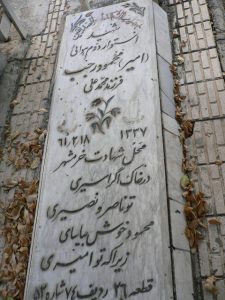 شهید
استوار دوم هوائی
(امیر) محمود رجب
فرزند محمد علی
۱۳۳۷ ۶۱/۲/۱۸
محل شهادت خرمشهر
در خاک اگر اسیری
تو ناصر و نصیری
محمود خوش بیابای
زیرا که تو امیری
قطعه ۲۶ ردیف ۷۴ شماره ۵۲